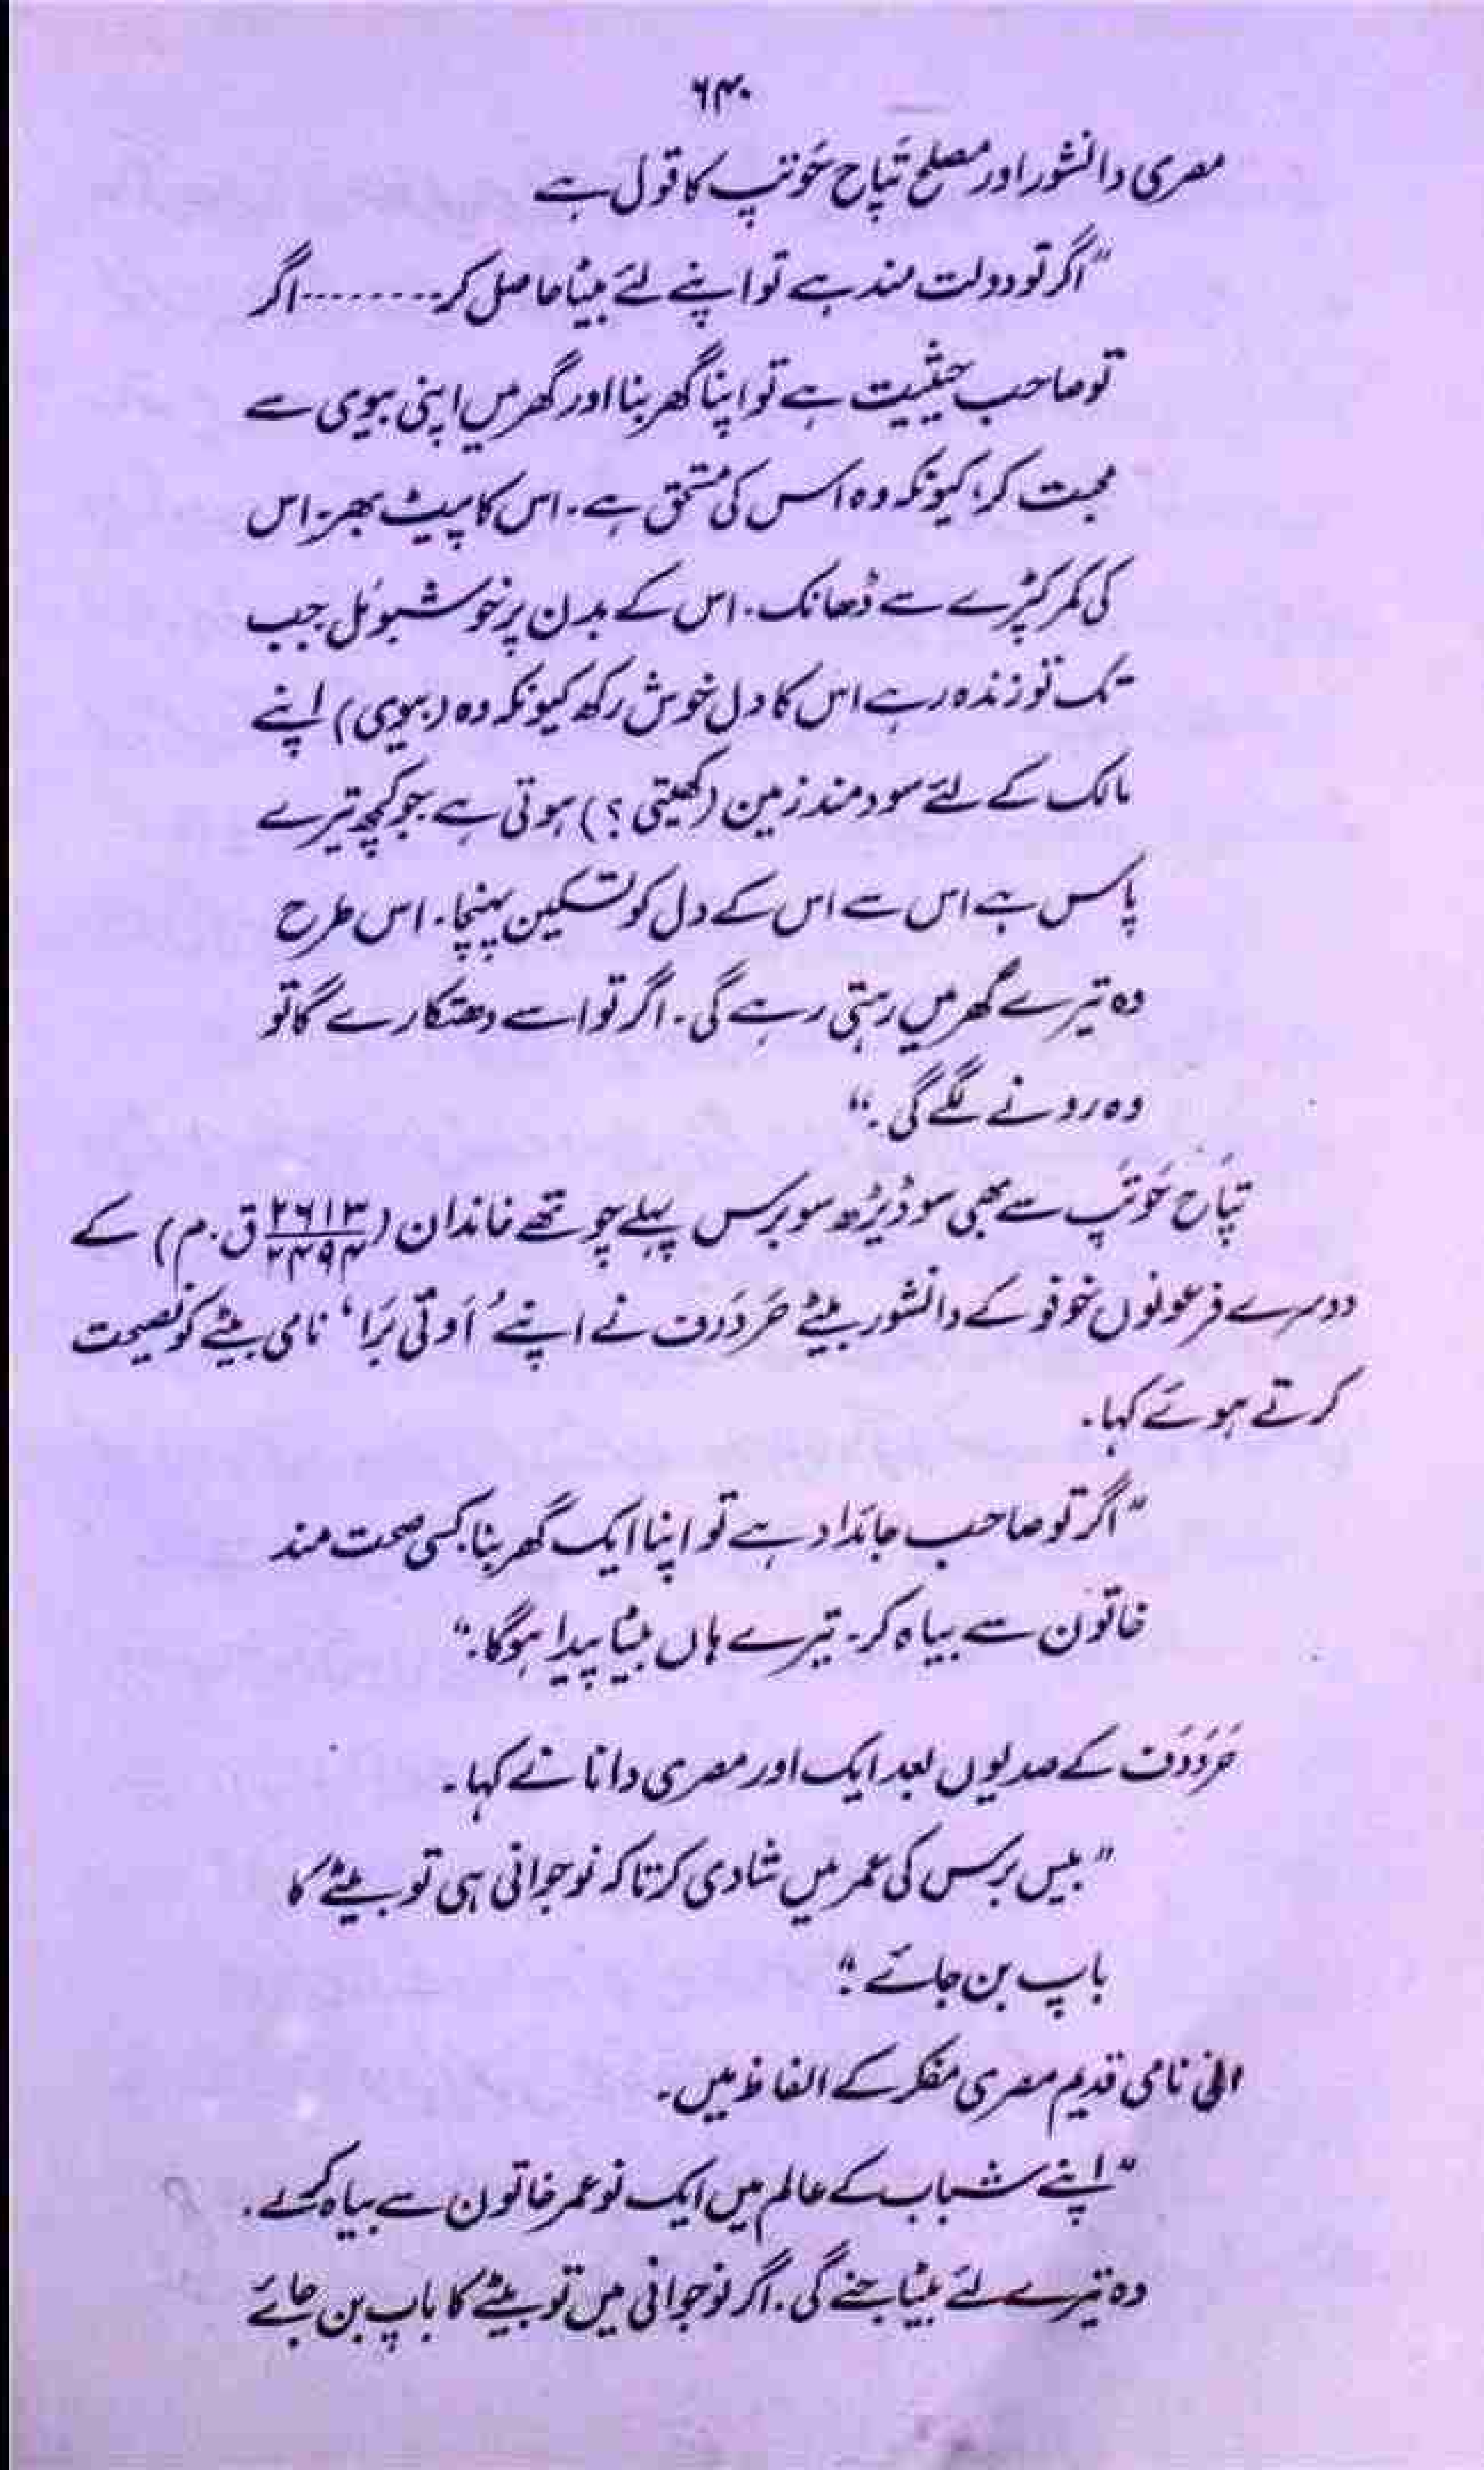 ۶۴۰
مصری دانشور اور مصلح تپاح حَوتپ کا قول ہے
"اگر تو دولت مند ہے تو اپنے لئے بیٹا حاصل کر۔۔۔۔۔۔۔۔اگر
تو صاحب حیثیت ہے تو اپنا گھر بنا اور گھر میں اپنی بیوی سے
محبت کر، کیونکہ وہ اس کی مستحق ہے۔ اس کا پیٹ بھر۔ اس
کی کمر کپڑے سے ڈھانک۔ اس کے بدن پر خوشبو مَل جب
تک تو زندہ رہے اس کا دل خوش رکھ کیونکہ وہ (بیوی) اپنے
مالک کے لئے سود مند زمین (کھیتی؟) ہوتی ہے جو کچھ تیرے
پاس ہے اس سے اس کے دل کو تسکین پہنچا۔ اس طرح
وہ تیرے گھر میں رہتی رہے گی۔ اگر تو اسے دھتکارے گا تو
وہ رونے لگے گی۔"
تپاح حَوتَپ سے بھی سو ڈیڑھ سو برس پہلے چوتھے خاندان (۲۶۱۳/۲۴۹۴ ق۔م) کے
دوسرے فرعونوں خوفو کے دانشور بیٹے حَردَدَف نے اپنے ُاَوتی بَرَا‘ نامی بیٹے کو نصیحت
کرتے ہوئے کہا۔
"اگر تو صاحب جائداد ہے تو اپنا ایک گھر بنا۔ کسی صحت مند
خاتون سے بیاہ کر۔ تیرے ہاں بیٹا پیدا ہوگا۔"
حَردَدَف کے صدیوں بعد ایک اور مصری دانا نے کہا۔
"بیس برس کی عمر میں شادی کر تاکہ نوجوانی ہی تو بیٹے کا
باپ بن جائے۔"
انی نامی قدیم مصری مفکر کے الفاظ میں۔
"اپنے شباب کے عالم میں ایک نوعمر خاتون سے بیاہ کرلے۔
وہ تیرے لئے بیٹا جنے گی۔ اگر نوجوانی میں تو بیٹے کا باپ بن جائے